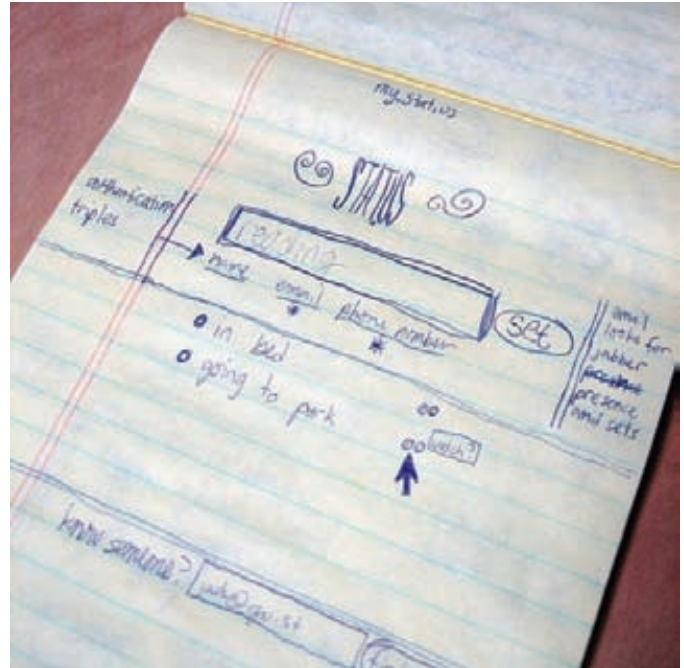 my.stat.us
STATUS
authentication
triples
reading
name email phone number
set
in bed
going to park
watch?
email
looks for
jabber
presence
and sets
know someone?